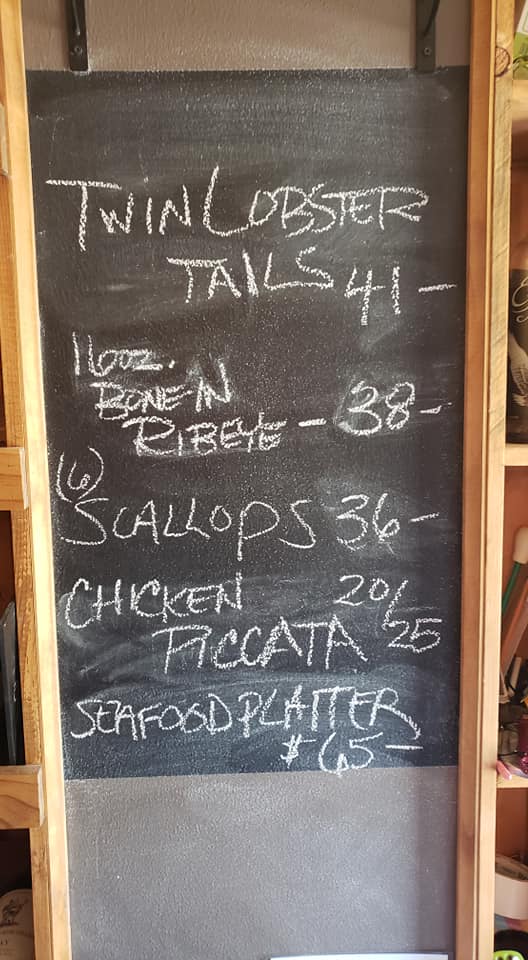 TWIN LOBSTER
TAILS 41-
16oz.
BONE-IN
RIBEYE - 38-
(6)
SCALLOPS 36-
CHICKEN 20/
PICCATA 25
SEAFOOD PLATTER
$65-